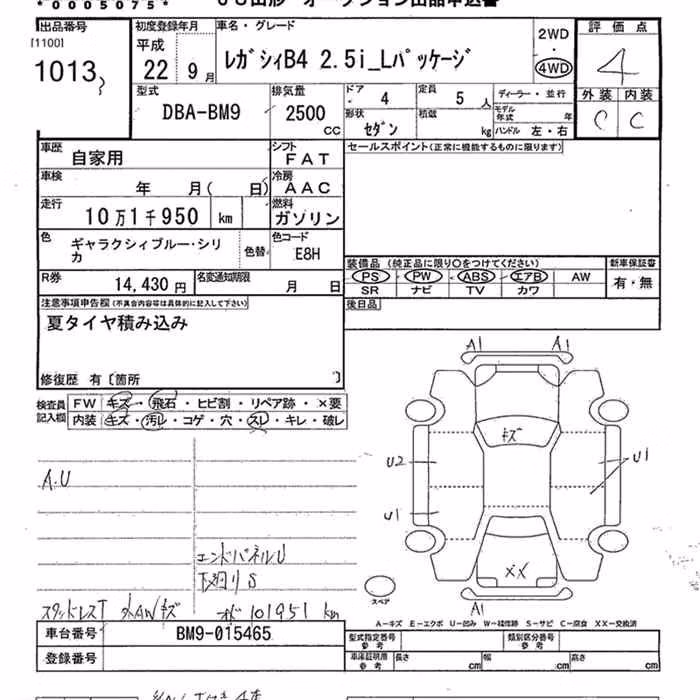 *0005075*
オークション出品申込書
出品番号 初度登録年月 車名・グレード 2WD 評価点
[1100] 平成 レガシィB4 2.5i_Lパッケージ 4WD 4
1013 22 年 9 月
型式 排気量 ドア 4 定員 5 人 ディーラー・並行 外装 内装
DBA-BM9 2500 CC 形状 セダン 積載 kg モデル年式 年 C C
ハンドル 左・右
車歴 自家用 シフト FAT セールスポイント(正常に機能するものに限ります)
車検 年 月( 日) 冷房 AAC
走行 10万1千950 km 燃料 ガソリン
色 ギャラクシィブルー・シリカ 色替 色コード E8H
装備品(純正品に限り○をつけてください) 新車保証書
R券 14,430円 名変通知期限 月 日 PS PW ABS エアB AW 有・無
SR ナビ TV カワ
注意事項申告欄(不具合内容等は具体的に記入して下さい) 後日品
夏タイヤ積み込み
修復歴 有〔箇所 〕
検査員記入欄 FW キズ・飛石・ヒビ割・リペア跡・×要
内装 キズ・汚レ・コゲ・穴・スレ・キレ・破レ
A1 A1
キズ
U2 U1
U1
A.U
エンドパネルU
下廻りS
XX
スペア
A1
スタッドレスT 大AWキズ オド101951km
A－キズ E－エクボ U－凹み W－補修跡 S－サビ C－腐食 XX－交換済
車台番号 BM9-015465 型式指定番号 参考 類別区分番号 参考
登録番号 車庫証明用 参考 長さ cm 幅 cm 高さ cm